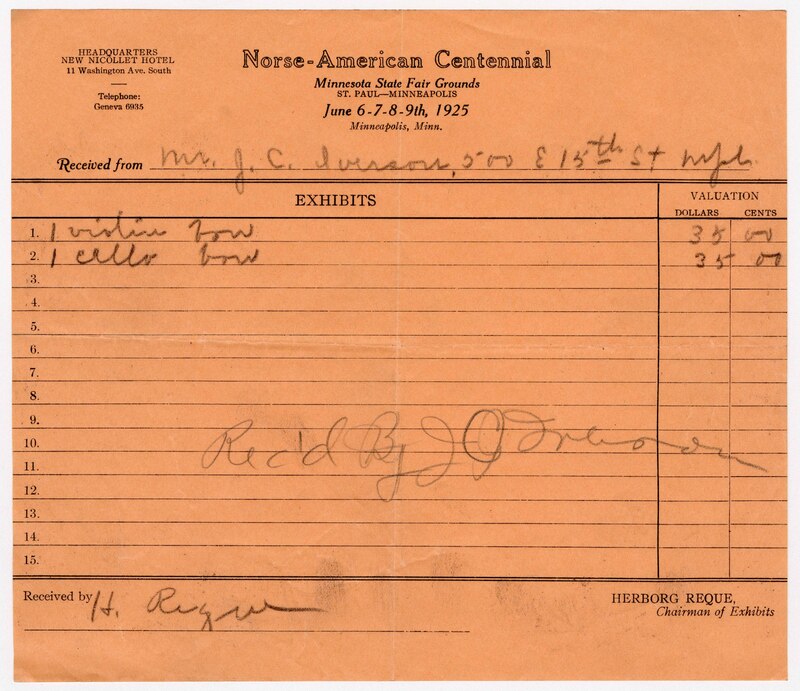 HEADQUARTERS
NEW NICOLLET HOTEL
11 Washington Ave. South
Telephone:
Geneva 6935
Norse-American Centennial
Minnesota State Fair Grounds
ST. PAUL—MINNEAPOLIS
June 6-7-8-9th, 1925
Minneapolis, Minn.
Received from Mr. J. C. Iverson, 500 E 15th St Mpls.
EXHIBITS
VALUATION
DOLLARS CENTS
1. 1 violin bow 35 00
2. 1 cello bow 35 00
3.
4.
5.
6.
7.
8.
9.
10.
11.
12.
13.
14.
15.
Rec'd By J
Received by H. Reque
HERBORG REQUE,
Chairman of Exhibits